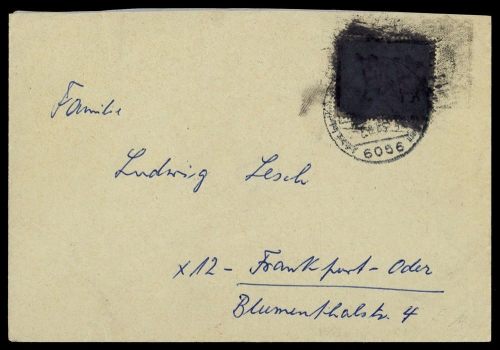 Familie
Ludwig Lesch
x12 - Frankfurt - Oder
Blumenthalstr. 4
6056